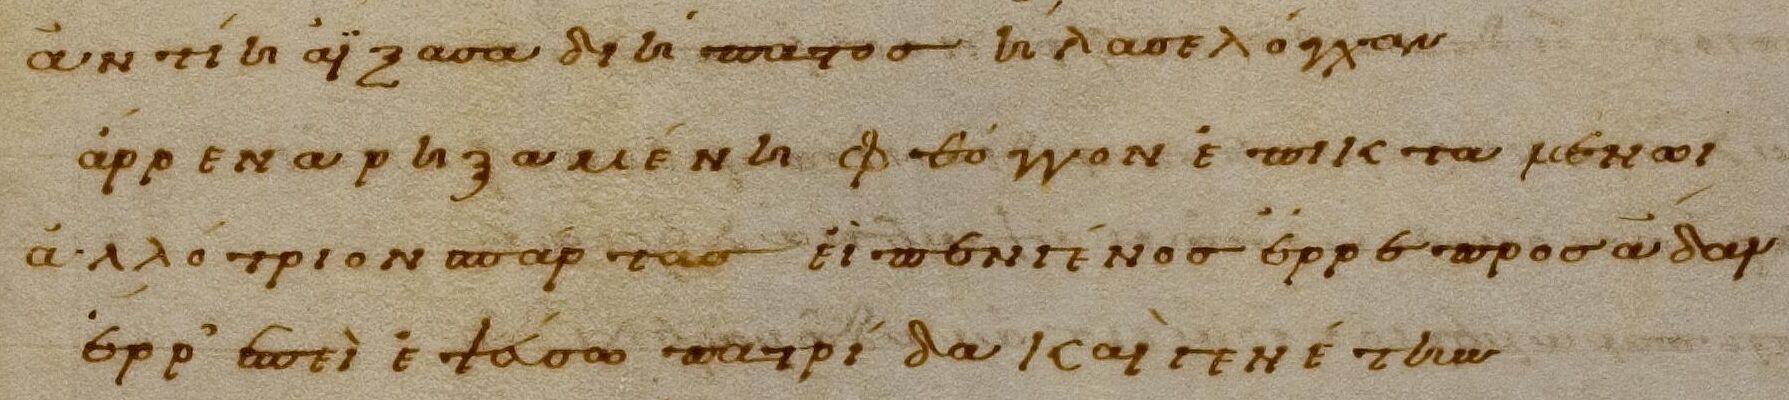 ἀντίη ἀΐξασα δι ἥπατος ἤλασε λόγχαν
ἄρρενα ῥηξαμένη φθόγγον ἐπικταμένωι
ἀλλότριον σπάρτας εἶπεν γένος ἔρρε προς ἄδαν
ἔρρ' ἐπεὶ ἐψεύσω πατρίδα καὶ γενέτην